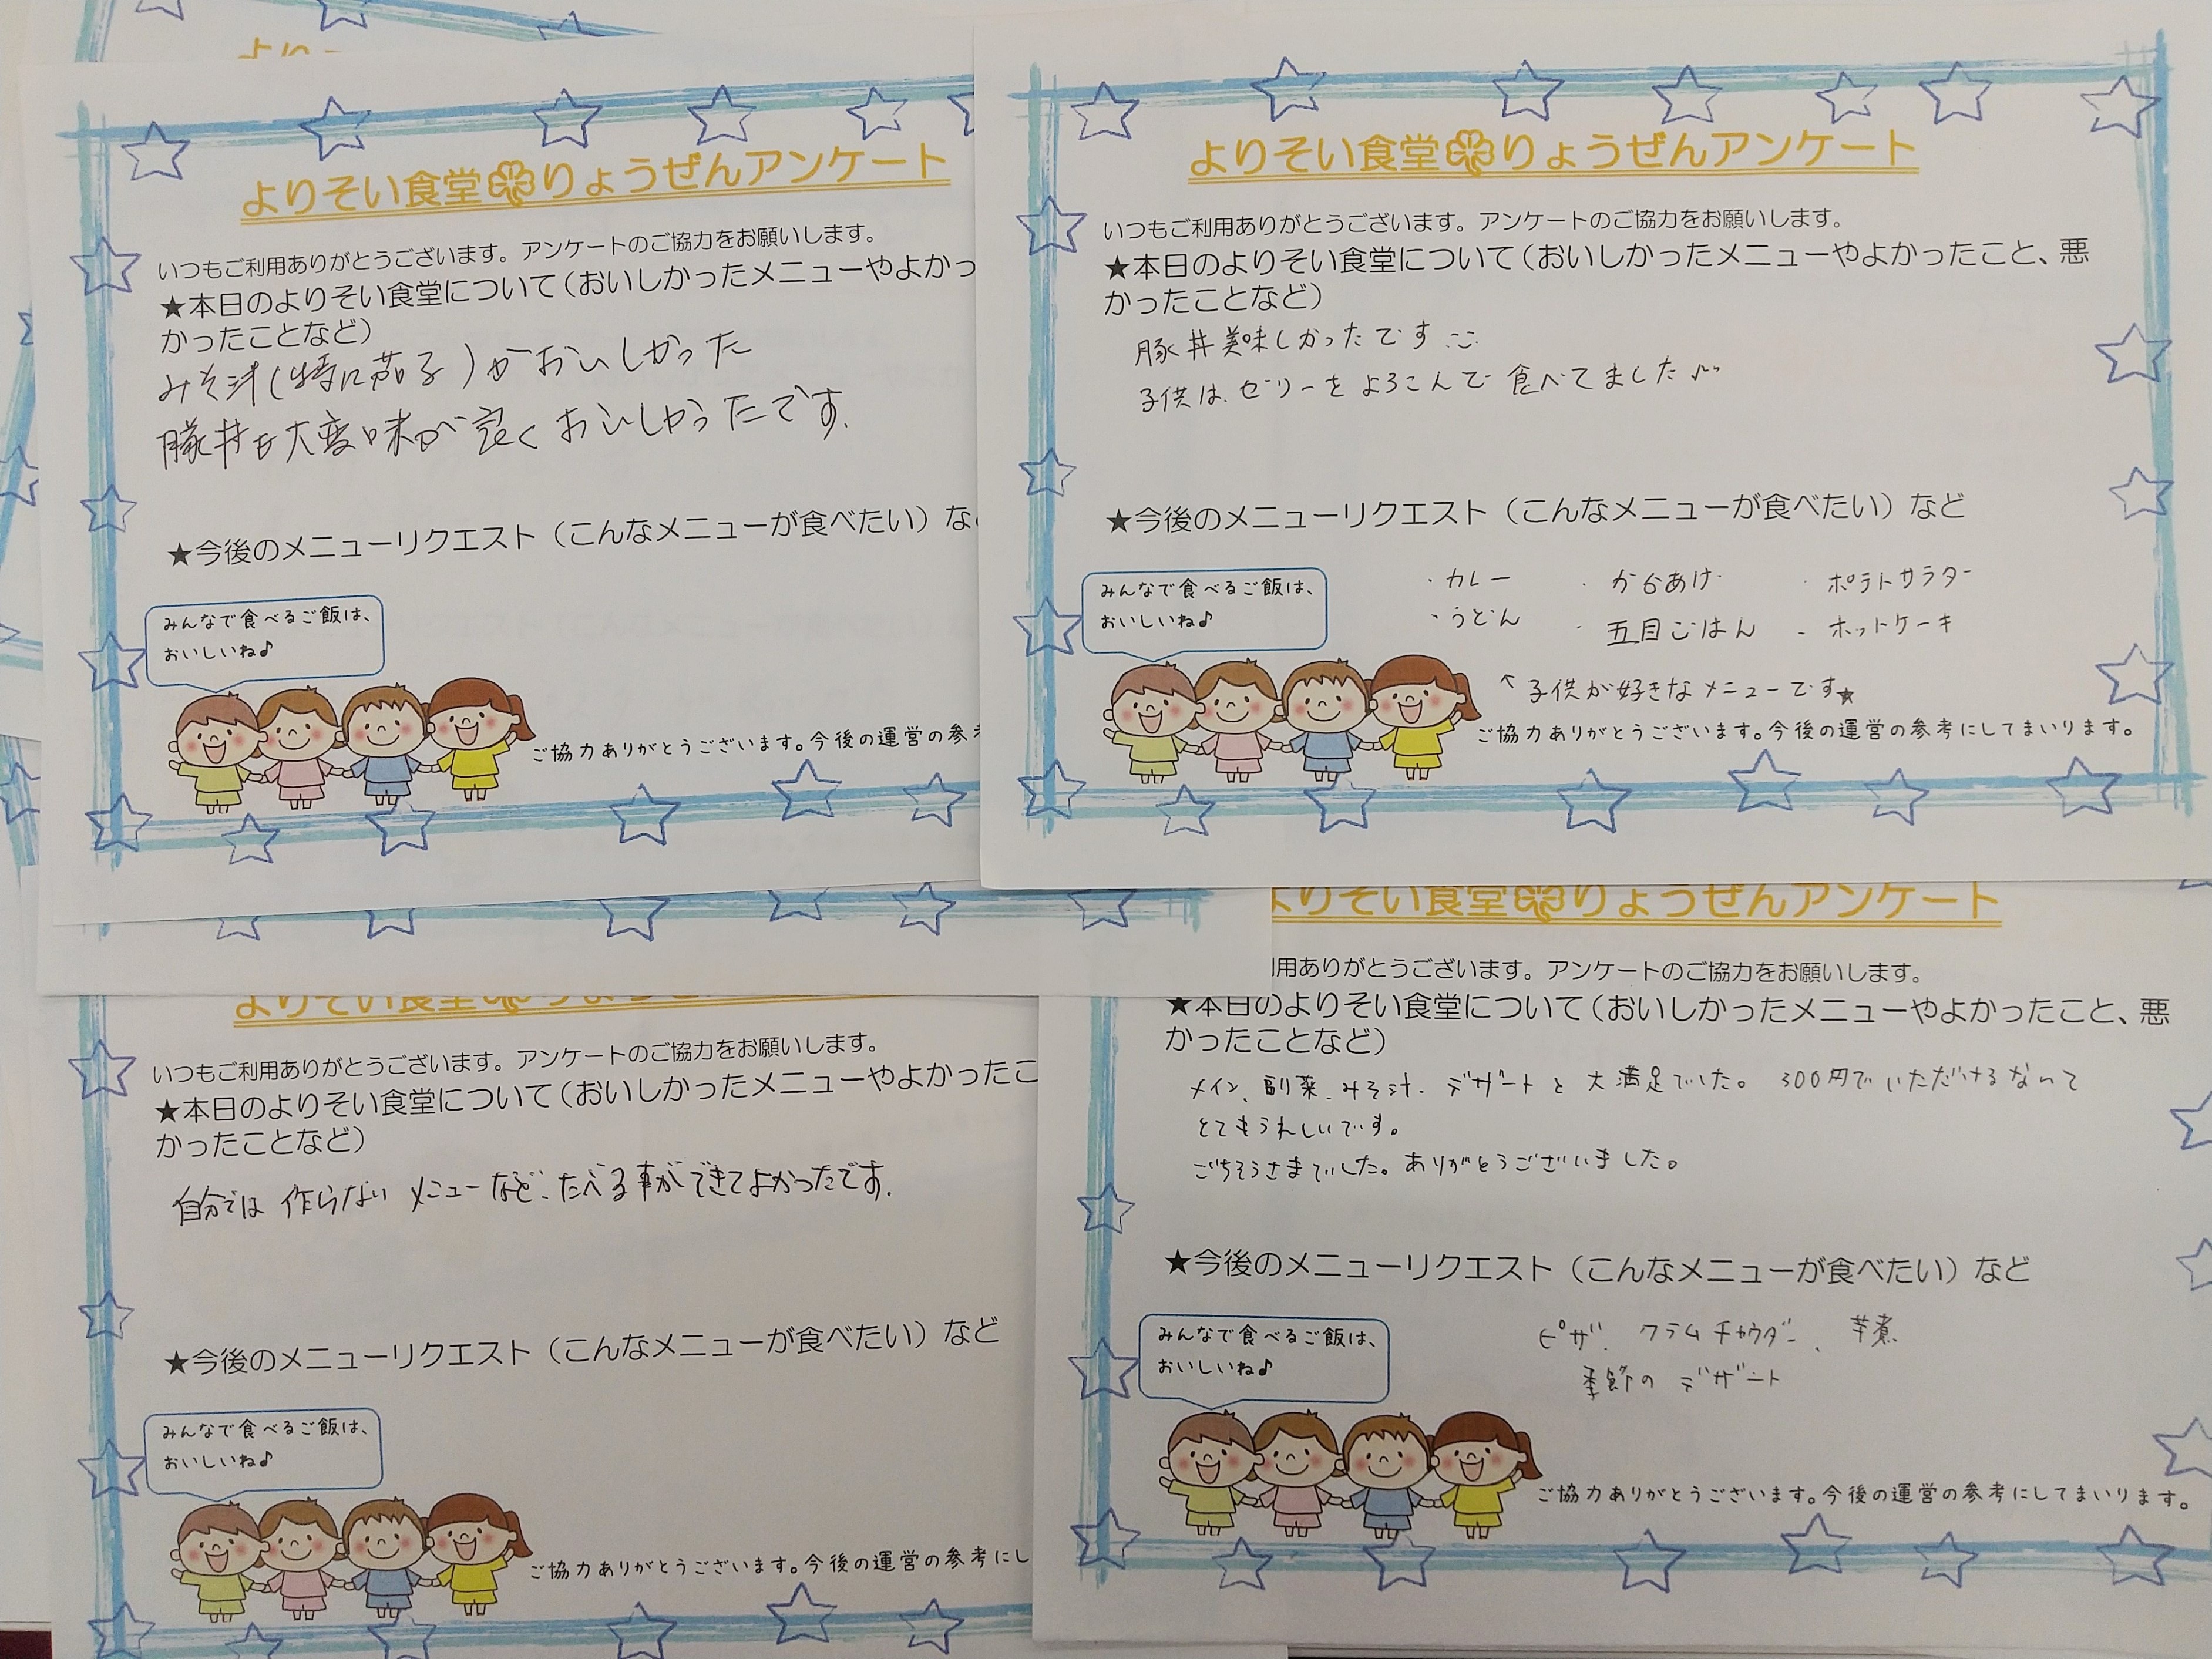 よりそい食堂りょうぜんアンケート
いつもご利用ありがとうございます。アンケートのご協力をお願いします。
★本日のよりそい食堂について（おいしかったメニューやよかっ
かったことなど）
みそ汁(特に茄子)がおいしかった
豚丼も大変味が良くおいしかったです.
★今後のメニューリクエスト（こんなメニューが食べたい）な
みんなで食べるご飯は、
おいしいね♪
ご協力ありがとうございます。今後の運営の参考
よりそい食堂りょうぜんアンケート
いつもご利用ありがとうございます。アンケートのご協力をお願いします。
★本日のよりそい食堂について（おいしかったメニューやよかったこと、悪
かったことなど）
豚丼美味しかったです
子供は、ゼリーをよろこんで食べてました♪
★今後のメニューリクエスト（こんなメニューが食べたい）など
・カレー ・からあげ ・ポテトサラダ
・うどん ・五目ごはん ・ホットケーキ
↑子供が好きなメニューです★
みんなで食べるご飯は、
おいしいね♪
ご協力ありがとうございます。今後の運営の参考にしてまいります。
よりそい食堂
いつもご利用ありがとうございます。アンケートのご協力をお願いします。
★本日のよりそい食堂について（おいしかったメニューやよかったこ
かったことなど）
自分では作らないメニューなど、たべる事ができてよかったです.
★今後のメニューリクエスト（こんなメニューが食べたい）など
みんなで食べるご飯は、
おいしいね♪
ご協力ありがとうございます。今後の運営の参考にし
よりそい食堂りょうぜんアンケート
利用ありがとうございます。アンケートのご協力をお願いします。
★本日のよりそい食堂について（おいしかったメニューやよかったこと、悪
かったことなど）
メイン、副菜、みそ汁、デザートと大満足でした。300円でいただけるなんて
とてもうれしいです。
ごちそうさまでした。ありがとうございました。
★今後のメニューリクエスト（こんなメニューが食べたい）など
ピザ、クラムチャウダー、芋煮
季節のデザート
みんなで食べるご飯は、
おいしいね♪
ご協力ありがとうございます。今後の運営の参考にしてまいります。